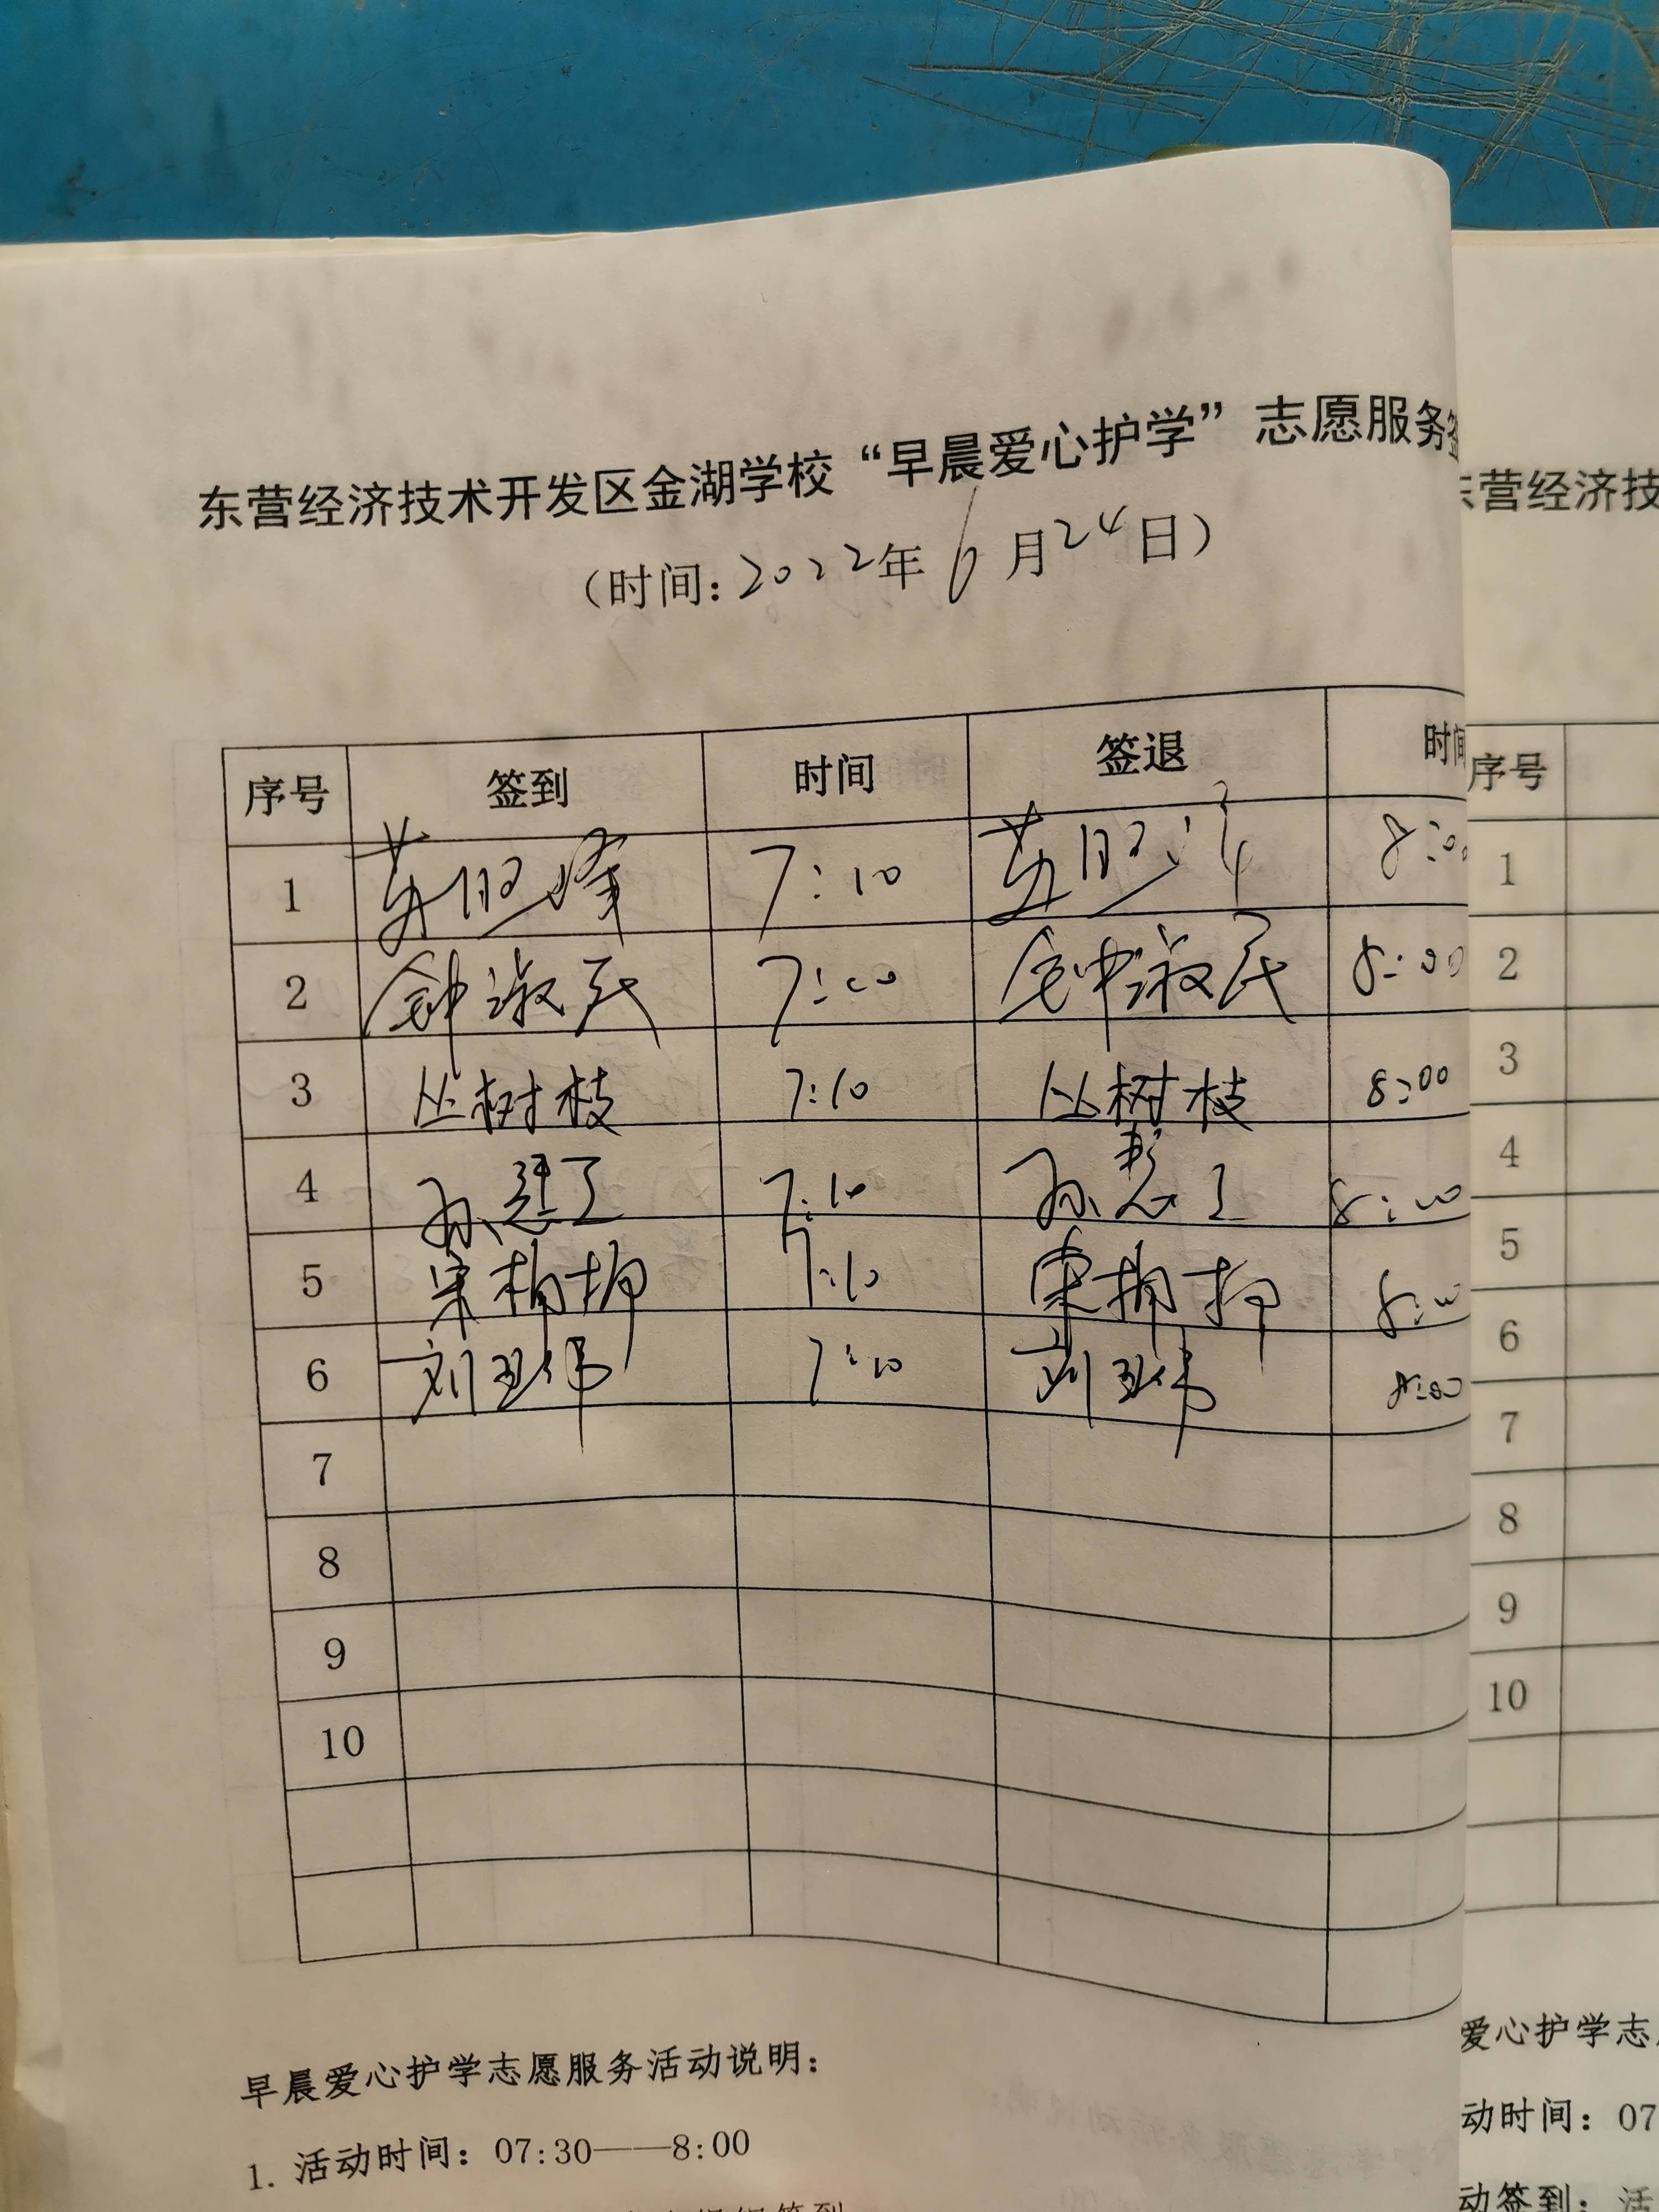 东营经济技术开发区金湖学校“早晨爱心护学”志愿服务签
(时间:2022年6月24日)
序号 签到 时间 签退 时间
1 7:10 8:00
2 钟淑民 7:00 钟淑民 8:00
3 丛树枝 7:10 丛树枝 8:00
4 孙慧了 7:10 孙慧了 8:00
5 宋 7:10 宋 8:00
6 刘卫伟 7:10 刘卫伟 8:00
7
8
9
10
早晨爱心护学志愿服务活动说明:
1. 活动时间:07:30——8:00
营经济技
序号
1
2
3
4
5
6
7
8
9
10
爱心护学志
动时间:07
动签到:活